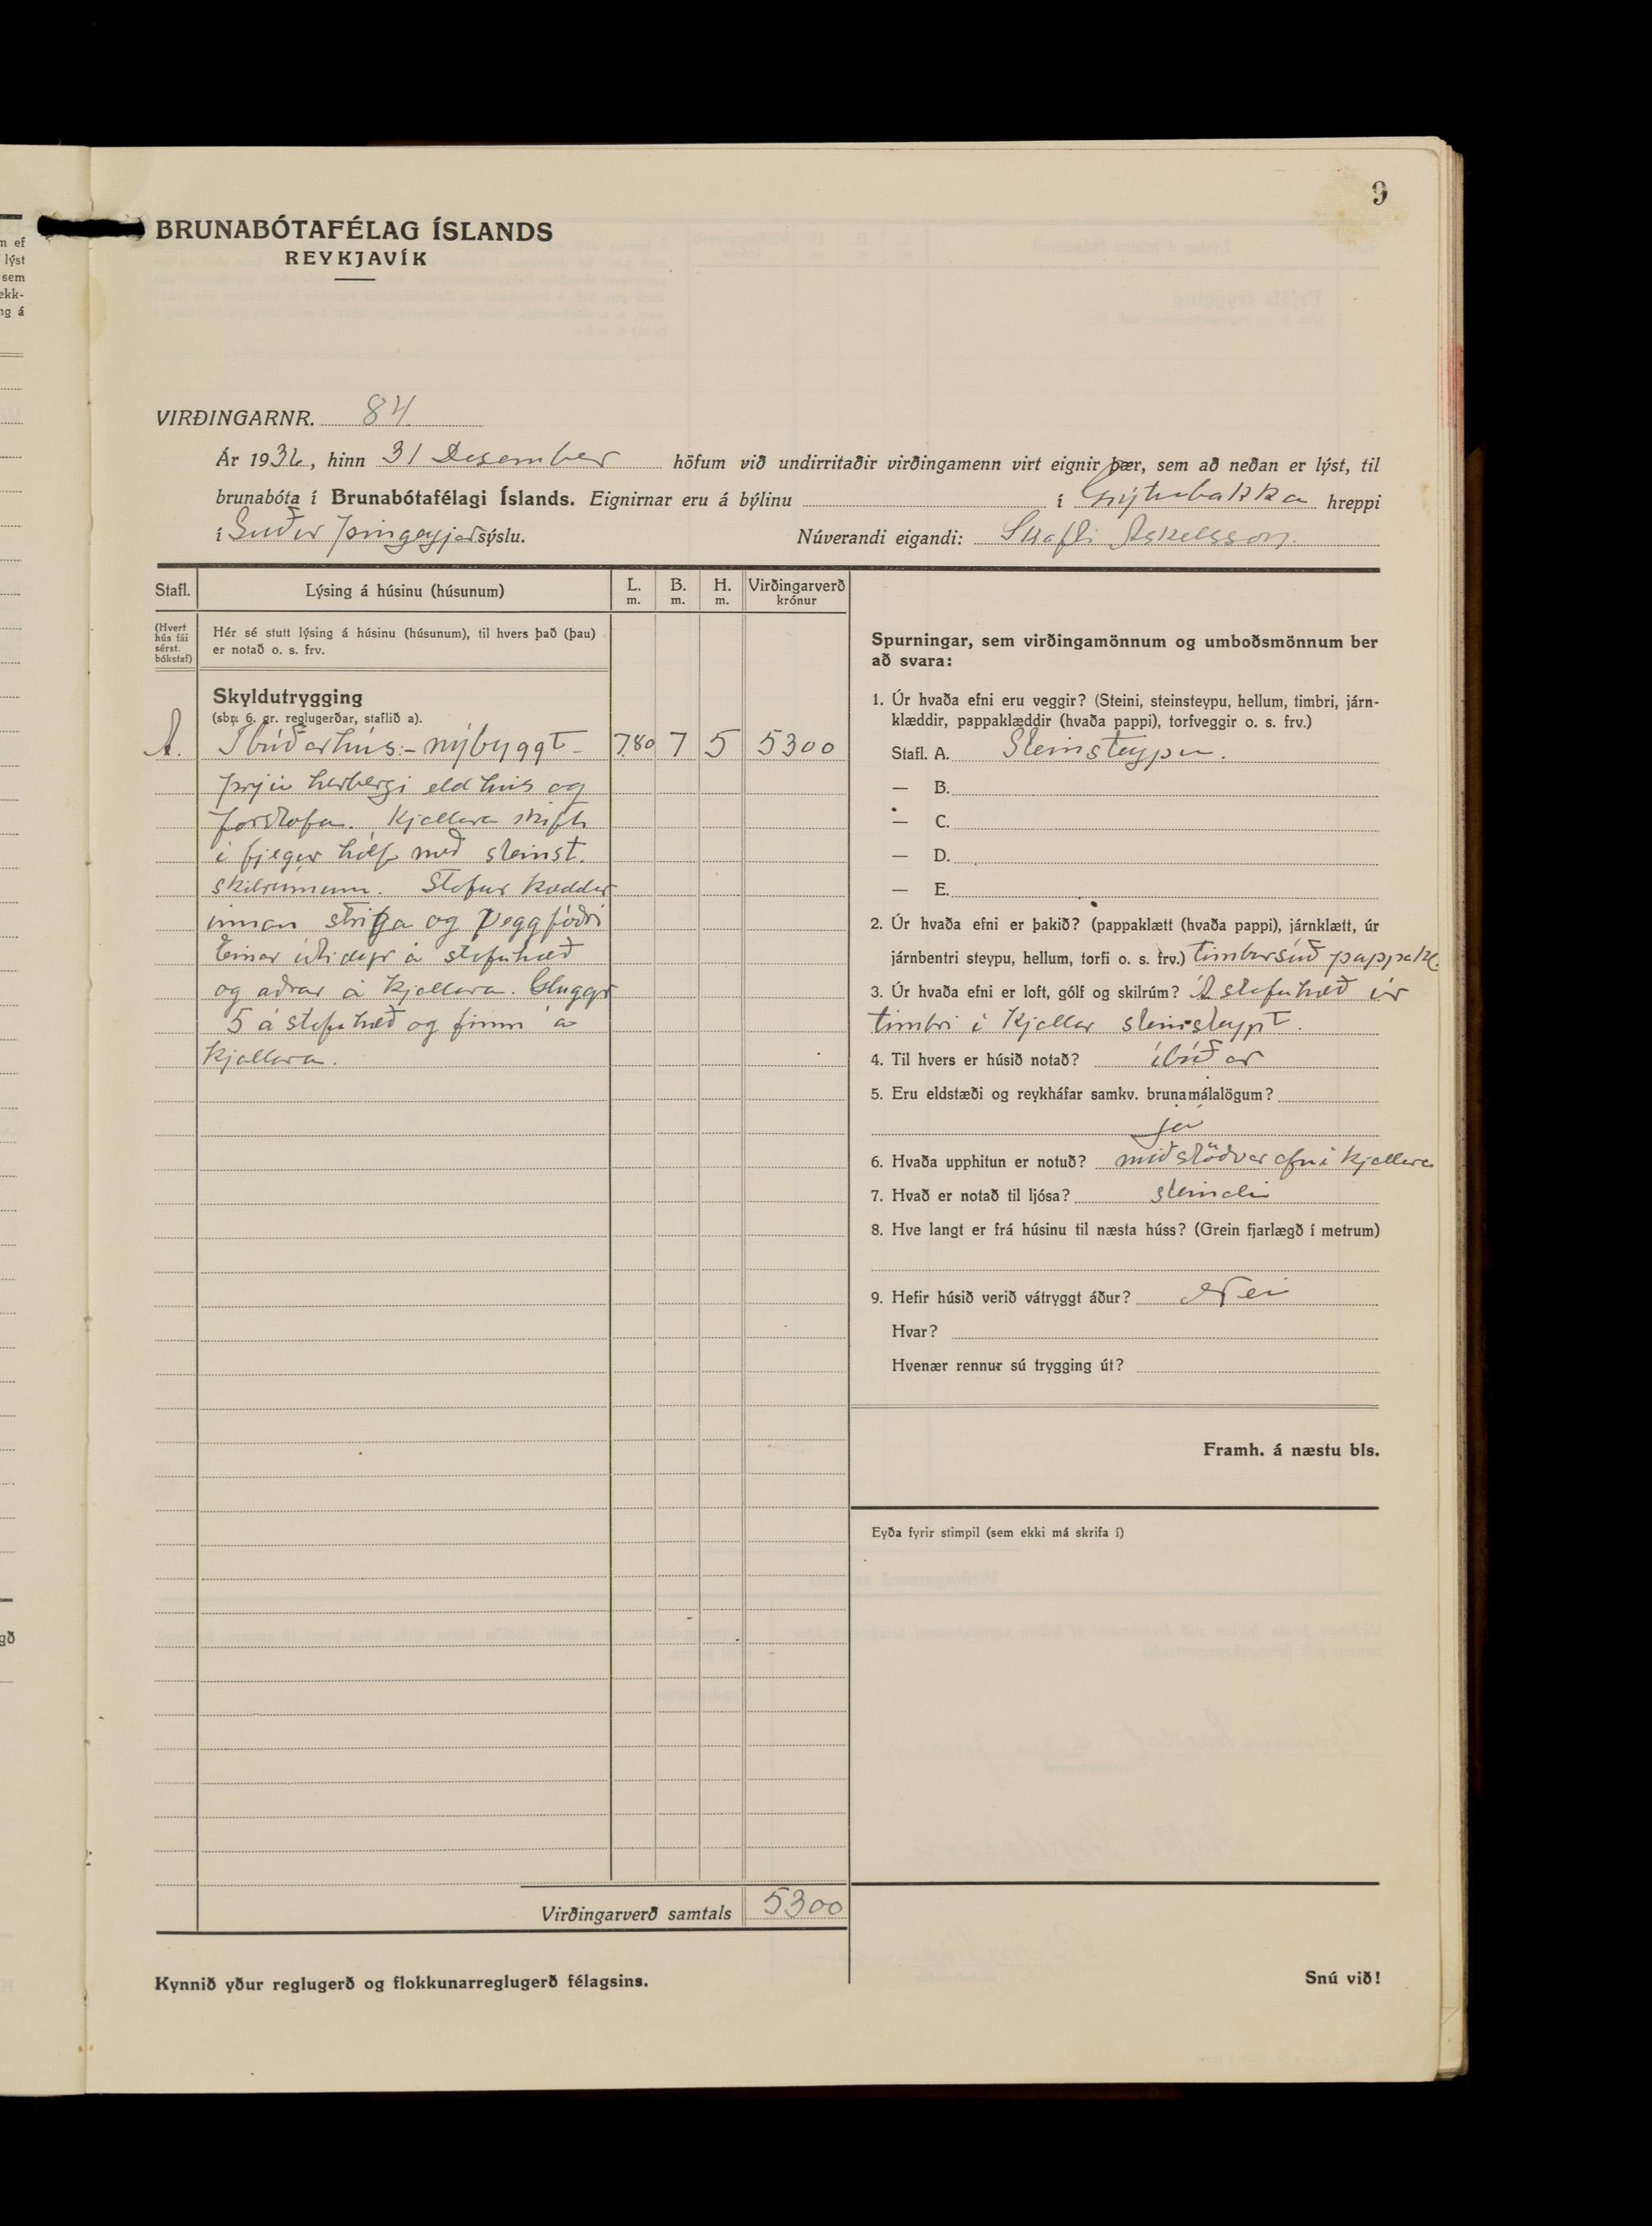 9
BRUNABÓTAFÉLAG ÍSLANDS
REYKJAVÍK
VIRÐINGARNR. 84
Ár 1936, hinn 31 Desember höfum við undirritaðir virðingamenn virt eignir þær, sem að neðan er lýst, til
brunabóta í Brunabótafélagi Íslands. Eignirnar eru á býlinu í Grýtubakka hreppi
í Suður Þingeyjarsýslu. Núverandi eigandi: Skafti Áskelsson.
Stafl. Lýsing á húsinu (húsunum) L. m. B. m. H. m. Virðingarverð krónur
(Hvert hús fái sérst. bókstaf)
Hér sé stutt lýsing á húsinu (húsunum), til hvers það (þau)
er notað o. s. frv.
Skyldutrygging
(sbr. 6. gr. reglugerðar, staflið a).
A. Íbúðarhús:- nýbyggt - 7.80 7 5 5300
þrjú herbergi eldhús og
forstofa. Kjallara skift
í fjegur hólf með steinst.
skilrúmum. Stofur klæddar
innan striga og veggfóðri
Einar útidyr á stofuhæð
og aðrar á kjallara. Gluggar
5 á stofuhæð og fimm á
kjallara.
Virðingarverð samtals 5300
Kynnið yður reglugerð og flokkunarreglugerð félagsins.
Spurningar, sem virðingamönnum og umboðsmönnum ber
að svara:
1. Úr hvaða efni eru veggir? (Steini, steinsteypu, hellum, timbri, járn-
klæddir, pappaklæddir (hvaða pappi), torfveggir o. s. frv.)
Stafl. A. Steinsteypu.
— B.
— C.
— D.
— E.
2. Úr hvaða efni er þakið? (pappaklætt (hvaða pappi), járnklætt, úr
járnbentri steypu, hellum, torfi o. s. frv.) timbursúð pappakl.
3. Úr hvaða efni er loft, gólf og skilrúm? Á stofuhæð úr
timbri í kjallar steinsteypt.
4. Til hvers er húsið notað? íbúðar
5. Eru eldstæði og reykháfar samkv. brunamálalögum?
já
6. Hvaða upphitun er notuð? miðstöðvar ofn í kjallara
7. Hvað er notað til ljósa? steinolia
8. Hve langt er frá húsinu til næsta húss? (Grein fjarlægð í metrum)
9. Hefir húsið verið vátryggt áður? Nei
Hvar?
Hvenær rennur sú trygging út?
Framh. á næstu bls.
Eyða fyrir stimpil (sem ekki má skrifa í)
Snú við!